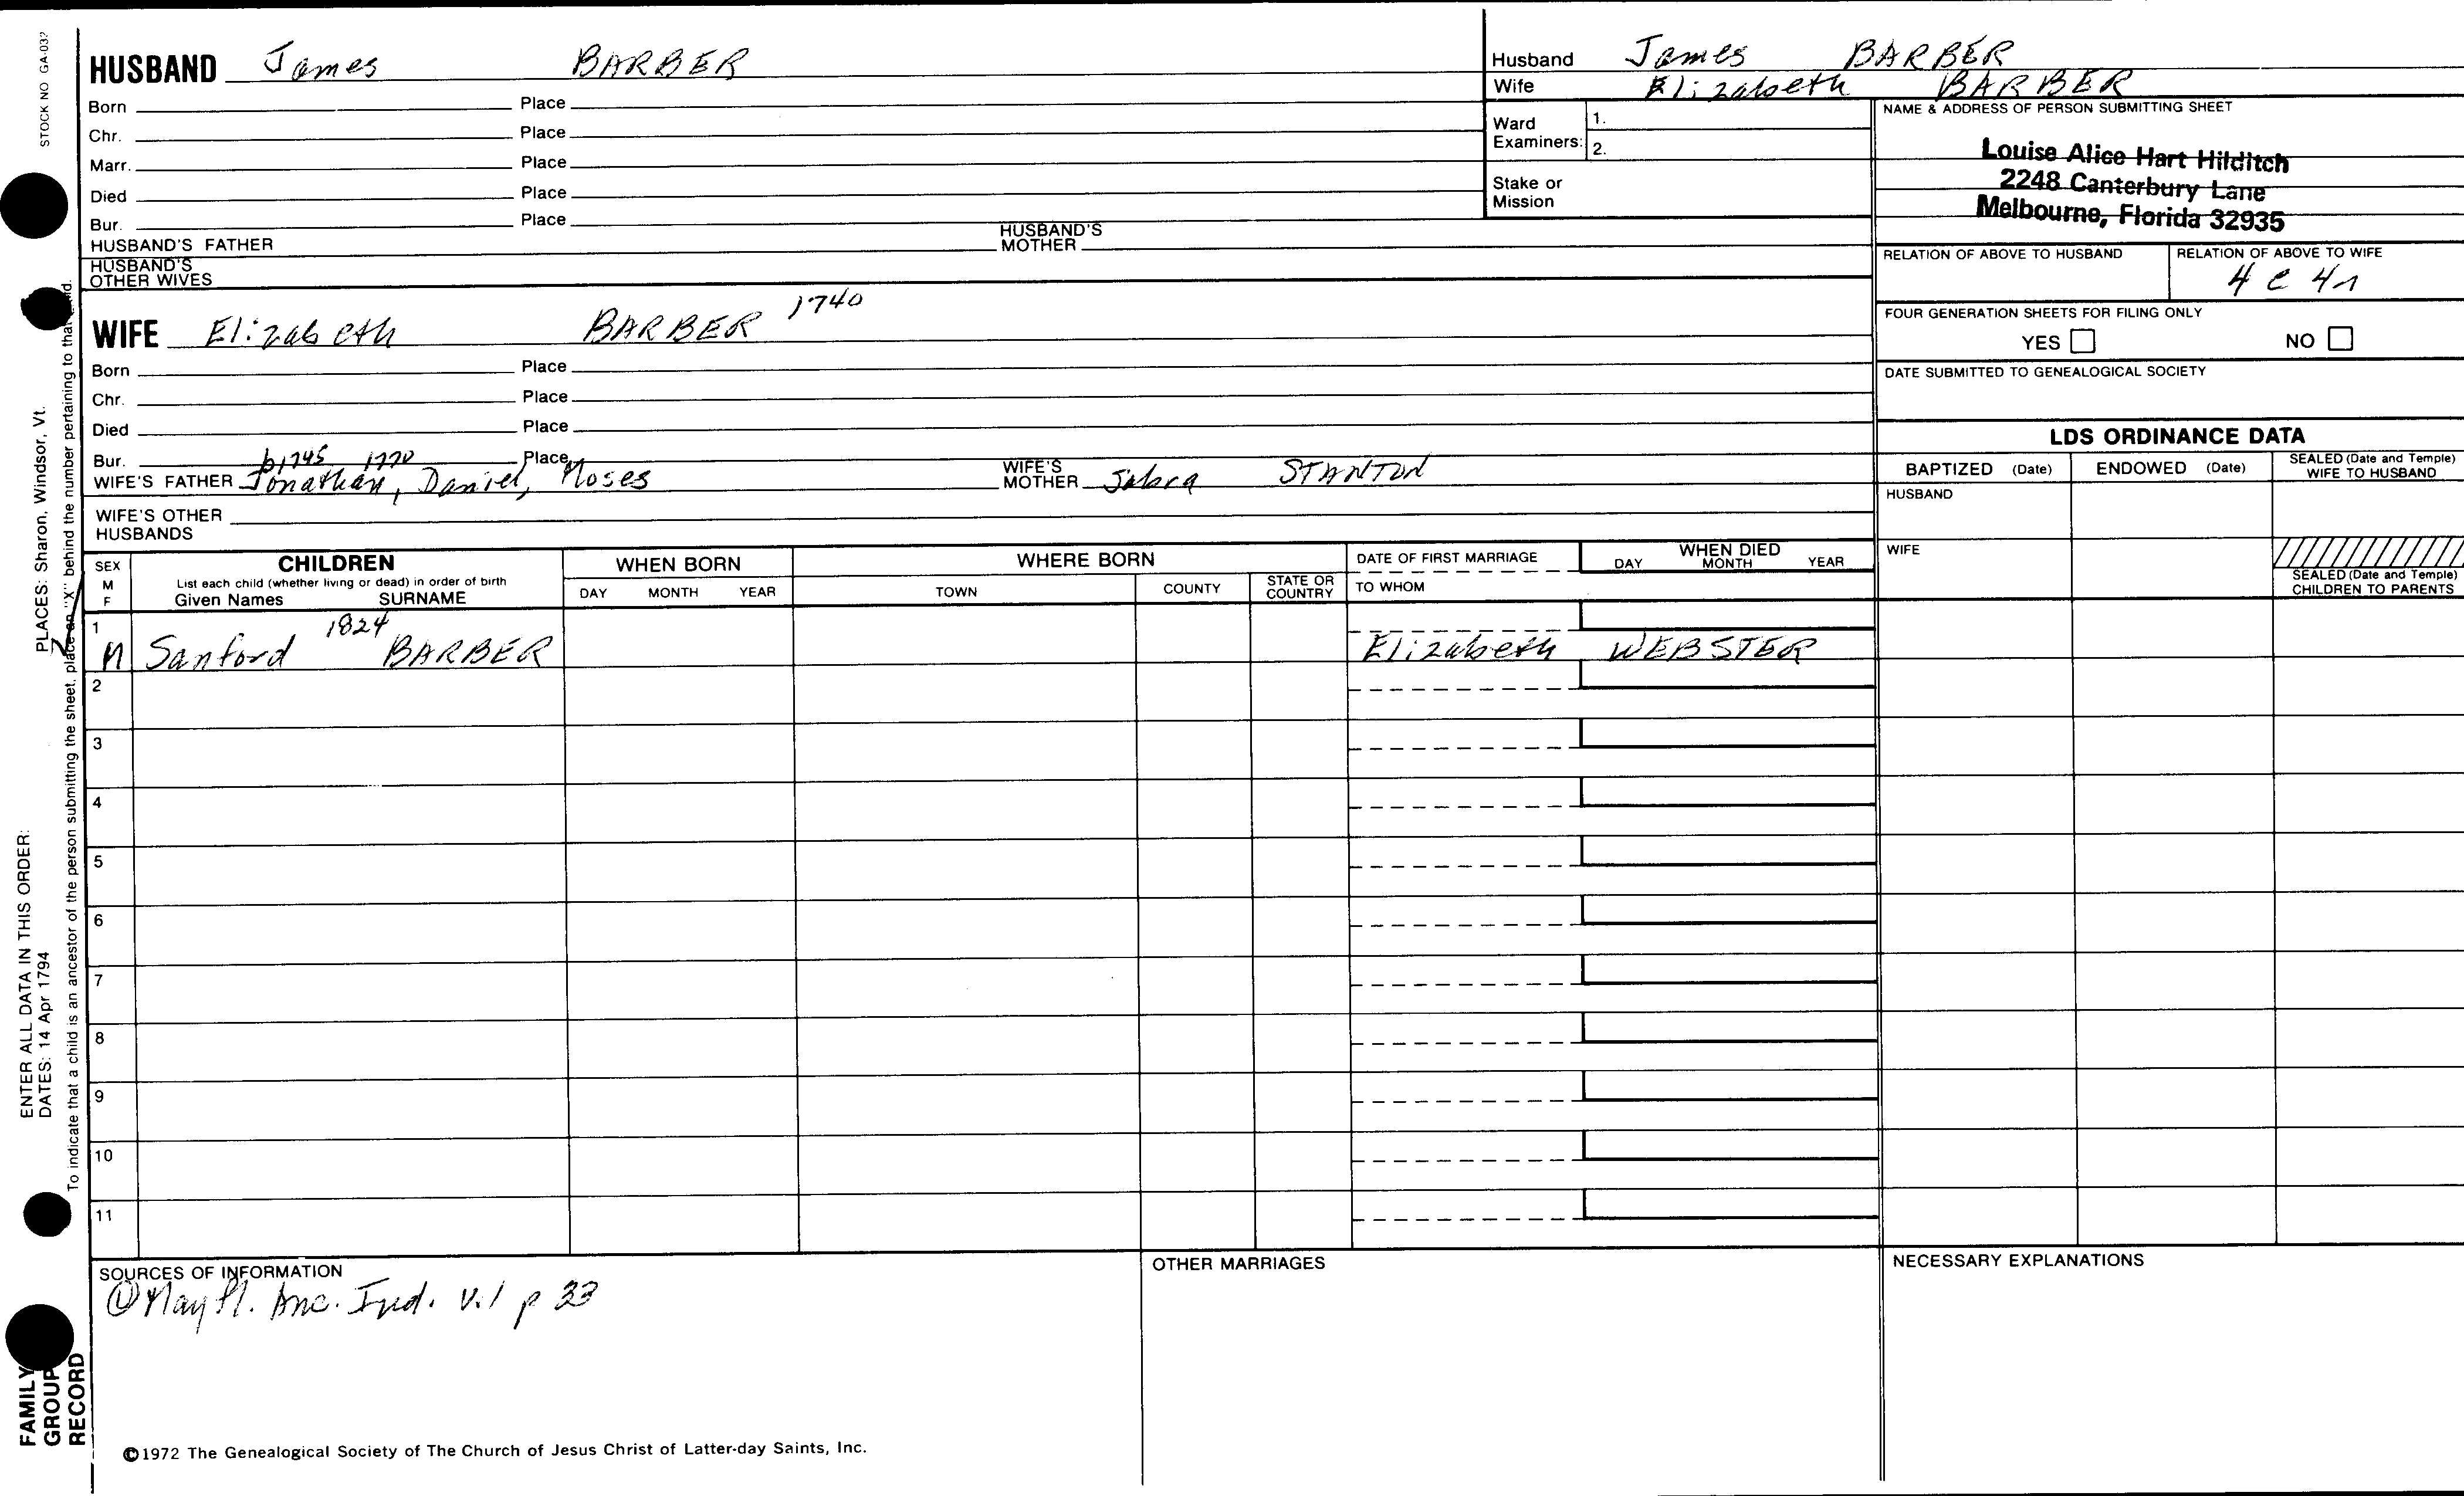 STOCK NO GA-032
HUSBAND James BARBER
Born Place
Chr. Place
Marr. Place
Died Place
Bur. Place
HUSBAND'S FATHER HUSBAND'S MOTHER
HUSBAND'S OTHER WIVES
WIFE Elizabeth BARBER 1740
Born Place
Chr. Place
Died Place
Bur. Place
b1745 1770
WIFE'S FATHER Jonathan, Daniel, Moses WIFE'S MOTHER Sabra STANTON
WIFE'S OTHER HUSBANDS
Husband James BARBER
Wife Elizabeth BARBER
Ward Examiners: 1.
2.
Stake or Mission
NAME & ADDRESS OF PERSON SUBMITTING SHEET
Louise Alice Hart Hilditch
2248 Canterbury Lane
Melbourne, Florida 32935
RELATION OF ABOVE TO HUSBAND RELATION OF ABOVE TO WIFE
4 c 4r
FOUR GENERATION SHEETS FOR FILING ONLY
YES NO
DATE SUBMITTED TO GENEALOGICAL SOCIETY
LDS ORDINANCE DATA
BAPTIZED (Date) ENDOWED (Date) SEALED (Date and Temple) WIFE TO HUSBAND
HUSBAND
WIFE
SEALED (Date and Temple) CHILDREN TO PARENTS
SEX M F
CHILDREN
List each child (whether living or dead) in order of birth
Given Names SURNAME
WHEN BORN
DAY MONTH YEAR
WHERE BORN
TOWN COUNTY STATE OR COUNTRY
DATE OF FIRST MARRIAGE
TO WHOM
WHEN DIED
DAY MONTH YEAR
1 1824
M Sanford BARBER Elizabeth WEBSTER
2
3
4
5
6
7
8
9
10
11
SOURCES OF INFORMATION
① Mayfl. Anc. Ind. v.1 p 33
OTHER MARRIAGES
NECESSARY EXPLANATIONS
©1972 The Genealogical Society of The Church of Jesus Christ of Latter-day Saints, Inc.
ENTER ALL DATA IN THIS ORDER:
DATES: 14 Apr 1794 PLACES: Sharon, Windsor, Vt.
To indicate that a child is an ancestor of the person submitting the sheet, place an "X" behind the number pertaining to that child.
FAMILY
GROUP
RECORD